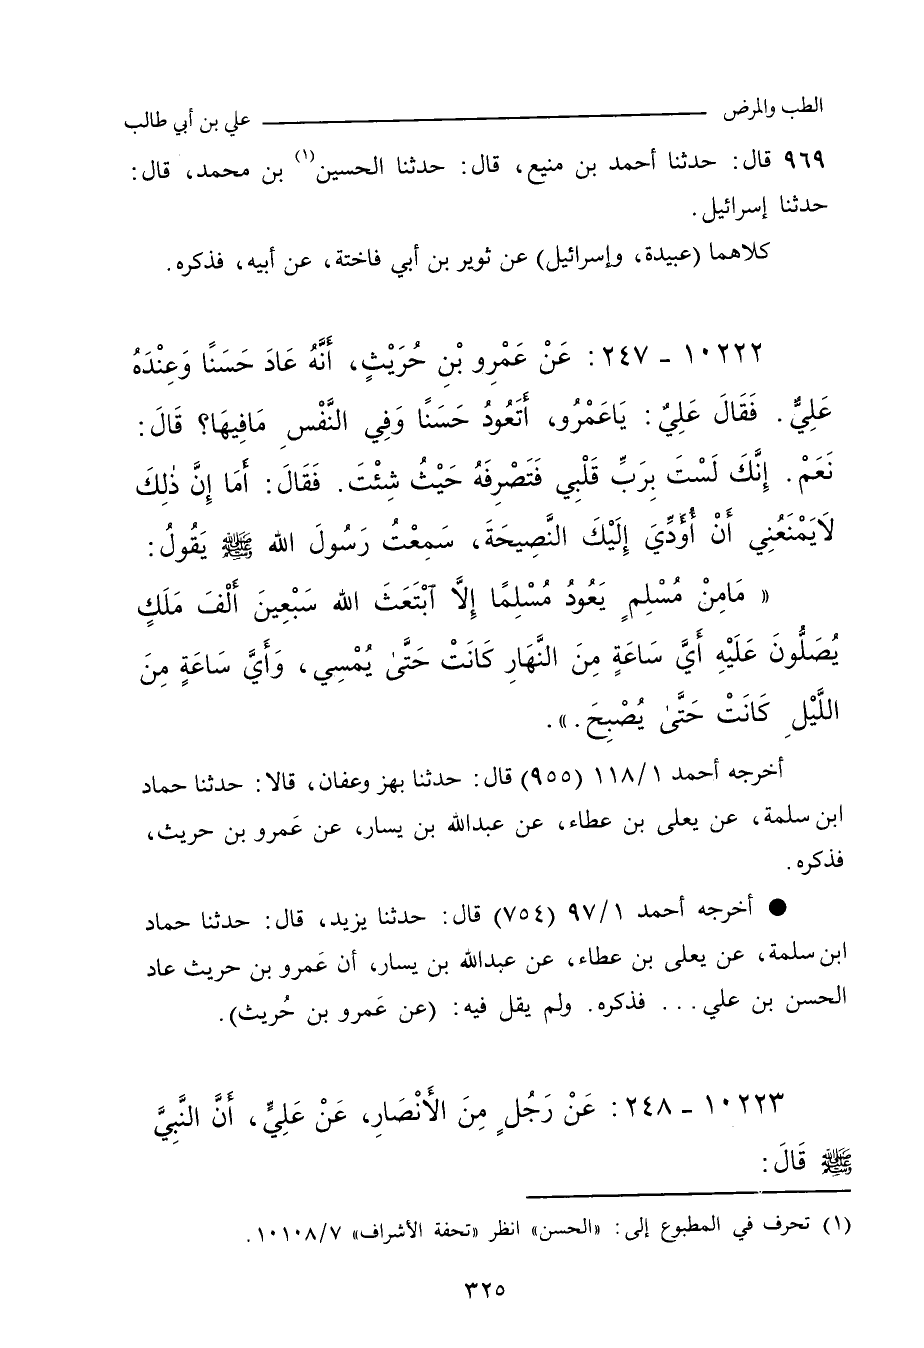 الطب والمرض ـــــــــ علي بن أبي طالب
٩٦٩ قال: حدثنا أحمد بن منيع، قال: حدثنا الحسين(١) بن محمد، قال:
حدثنا إسرائيل.
كلاهما (عبيدة، وإسرائيل) عن ثوير بن أبي فاختة، عن أبيه، فذكره.
١٠٢٢٢ - ٢٤٧: عَنْ عَمْرِو بْنِ حُرَيْثٍ، أَنَّهُ عَادَ حَسَنًا وَعِنْدَهُ
عَلِيٌّ. فَقَالَ عَلِيٌّ: يَاعَمْرُو، أَتَعُودُ حَسَنًا وَفِي النَّفْسِ مَافِيهَا؟ قَالَ:
نَعَمْ. إِنَّكَ لَسْتَ بِرَبِّ قَلْبِي فَتَصْرِفَهُ حَيْثُ شِئْتَ. فَقَالَ: أَمَا إِنَّ ذٰلِكَ
لَايَمْنَعُنِي أَنْ أُؤَدِّيَ إِلَيْكَ النَّصِيحَةَ، سَمِعْتُ رَسُولَ الله ﷺ يَقُولُ:
« مَامِنْ مُسْلِمٍ يَعُودُ مُسْلِمًا إِلَّا ٱبْتَعَثَ الله سَبْعِينَ أَلْفَ مَلَكٍ
يُصَلُّونَ عَلَيْهِ أَيَّ سَاعَةٍ مِنَ النَّهَارِ كَانَتْ حَتَّىٰ يُمْسِي، وَأَيَّ سَاعَةٍ مِنَ
اللَّيْلِ كَانَتْ حَتَّىٰ يُصْبِحَ.».
أخرجه أحمد ١/١١٨ (٩٥٥) قال: حدثنا بهز وعفان، قالا: حدثنا حماد
ابن سلمة، عن يعلى بن عطاء، عن عبدالله بن يسار، عن عَمرو بن حريث،
فذكره.
● أخرجه أحمد ١/٩٧ (٧٥٤) قال: حدثنا يزيد، قال: حدثنا حماد
ابن سلمة، عن يعلى بن عطاء، عن عبدالله بن يسار، أن عَمرو بن حريث عاد
الحسن بن علي... فذكره. ولم يقل فيه: (عن عَمرو بن حُريث).
١٠٢٢٣ - ٢٤٨: عَنْ رَجُلٍ مِنَ الأَنْصَارِ، عَنْ عَلِيٍّ، أَنَّ النَّبِيَّ
ﷺ قَالَ:
(١) تحرف في المطبوع إلى: «الحسن» انظر «تحفة الأشراف» ٧/١٠١٠٨.
٣٢٥